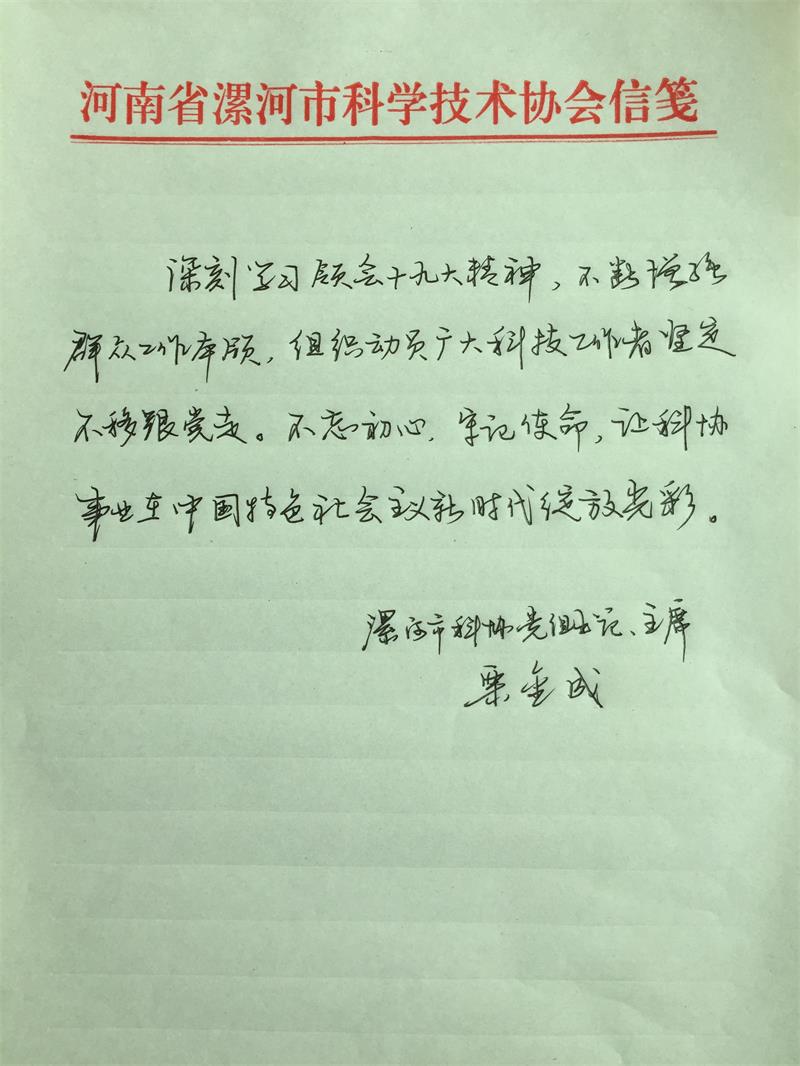 河南省漯河市科学技术协会信笺
深刻学习领会十九大精神，不断增强
群众工作本领，组织动员广大科技工作者坚定
不移跟党走。不忘初心，牢记使命，让科协
事业在中国特色社会主义新时代绽放光彩。
漯河市科协党组书记、主席
栗金成